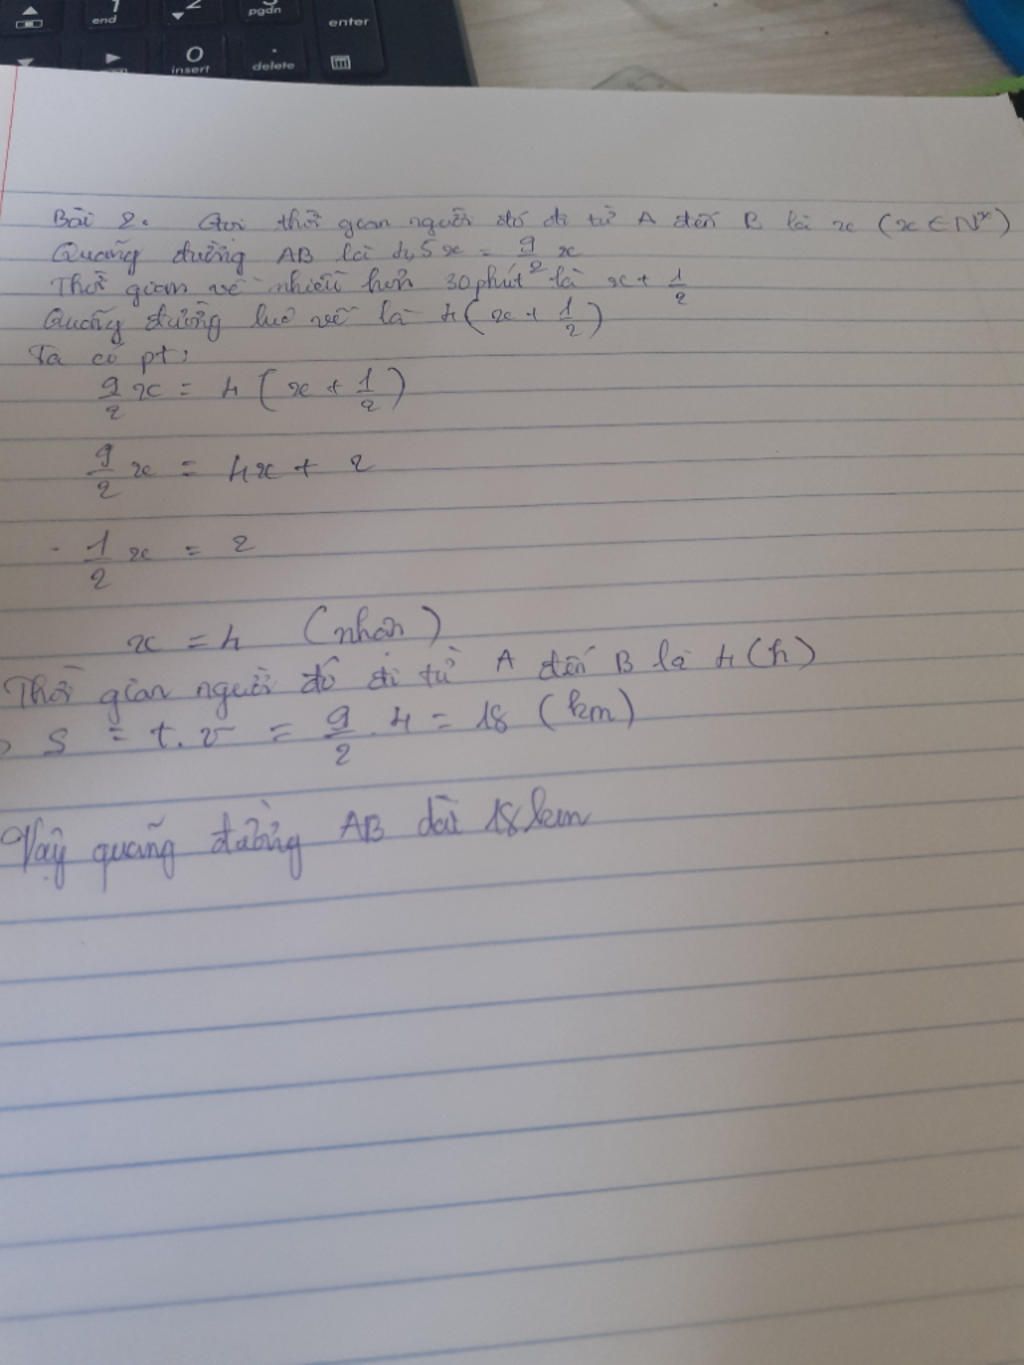 end
pgdn
enter
0
insert
.
delete
Bài 2. Gọi thời gian người đó đi từ A đến B là x (x ∈ N*)
Quãng đường AB là 4,5x = 9/2 x
Thời gian về nhiều hơn 30 phút là x + 1/2
Quãng đường lúc về là 4(x + 1/2)
Ta có pt:
9/2 x = 4(x + 1/2)
9/2 x = 4x + 2
1/2 x = 2
x = 4 (nhận)
Thời gian người đó đi từ A đến B là 4(h)
S = t.v = 9/2 . 4 = 18 (km)
Vậy quãng đường AB dài 18km